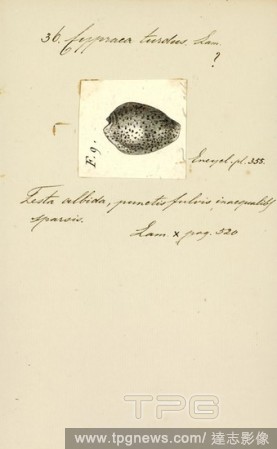 36. Cypraea turdus, Lam.
?
F. 9.
Encycl. pl. 355.
Testa albida, punctis fulvis inaequalibs
sparsis.
Lam. x pag. 520
TPG
www.tpgnews.com/ 達志影像